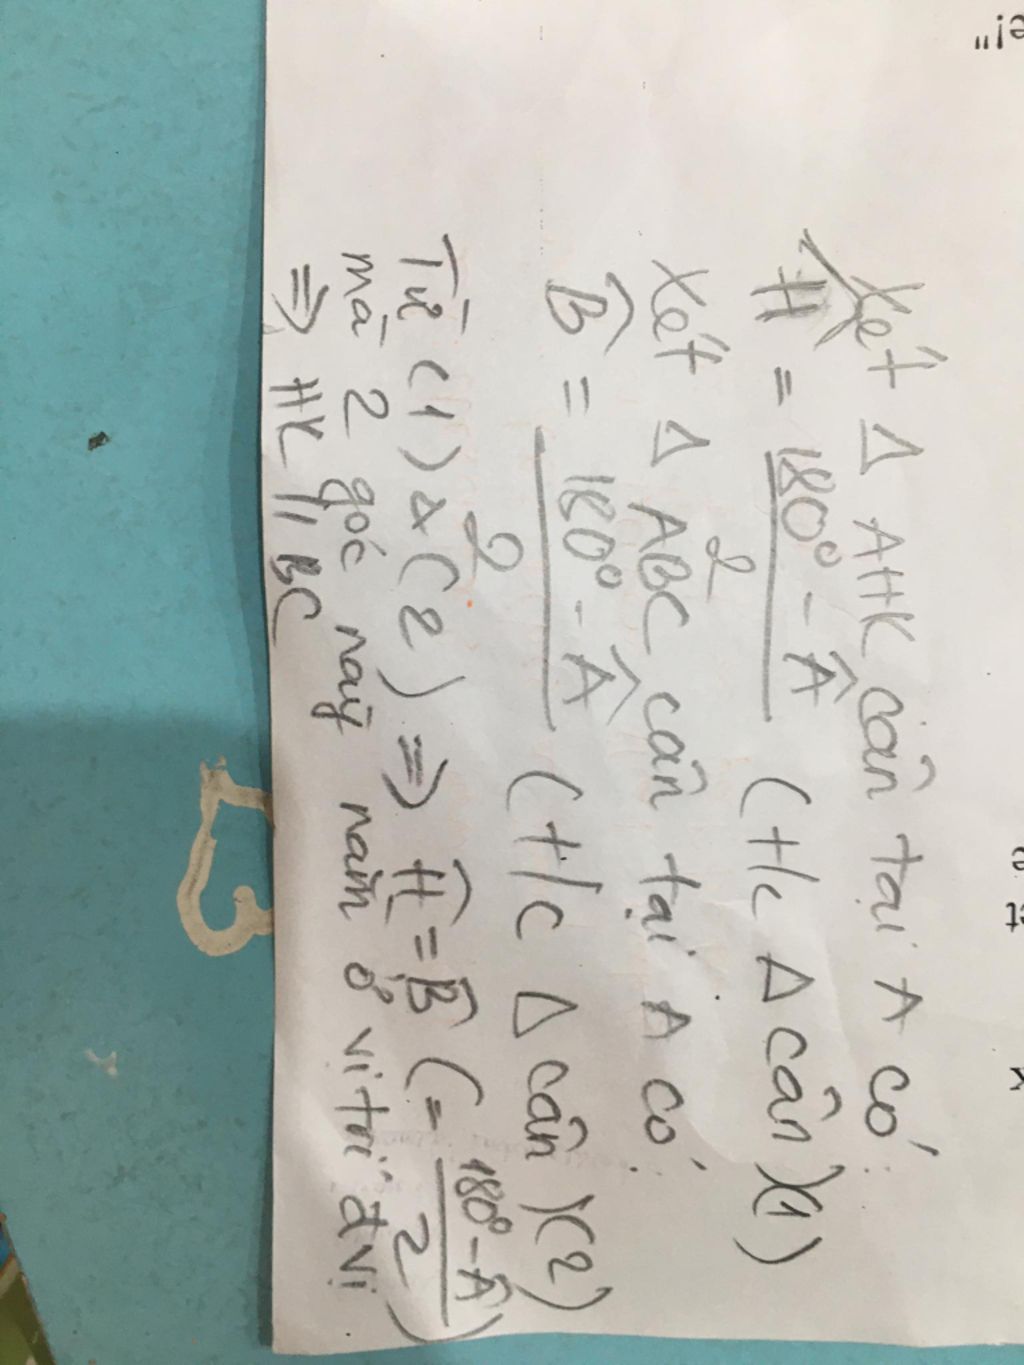 Xét Δ AHK cân tại A có:
Ĥ = (180° - Â)/2 (t/c Δ cân)(1)
Xét Δ ABC cân tại A có:
B̂ = (180° - Â)/2 (t/c Δ cân)(2)
Từ (1) & (2) => Ĥ = B̂ (= (180° - Â)/2)
mà 2 góc này nằm ở vị trí đvị
=> HK // BC
e!"